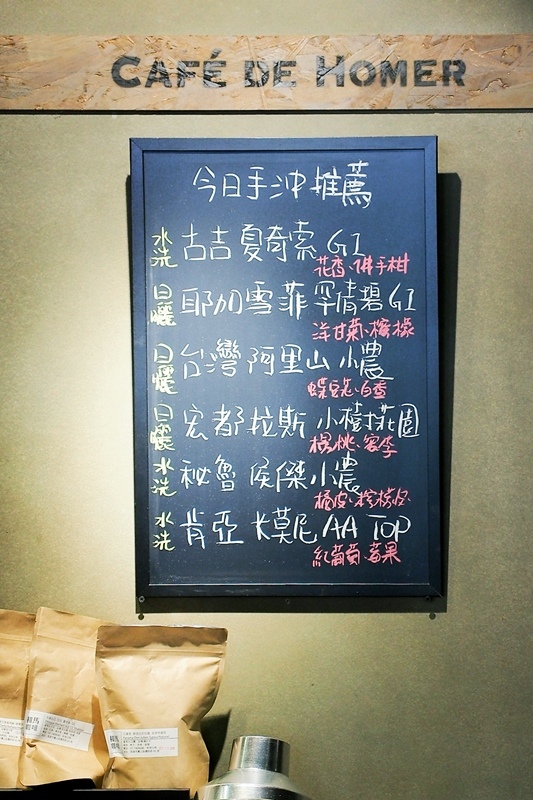 CAFÉ DE HOMER
今日手沖推薦
水洗 古吉 夏奇索 G1
花香、佛手柑
日曬 耶加雪菲 罕倩碧 G1
洋甘菊、檸檬
日曬 台灣 阿里山 小農
蝶豆花、白香
日曬 宏都拉斯 小樹莊園
楊桃、蜜李
水洗 秘魯 侯傑小農
橘皮、檸檬皮
水洗 肯亞 K莫尼 AA TOP
紅葡萄、莓果